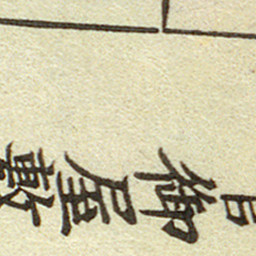 御屋敷